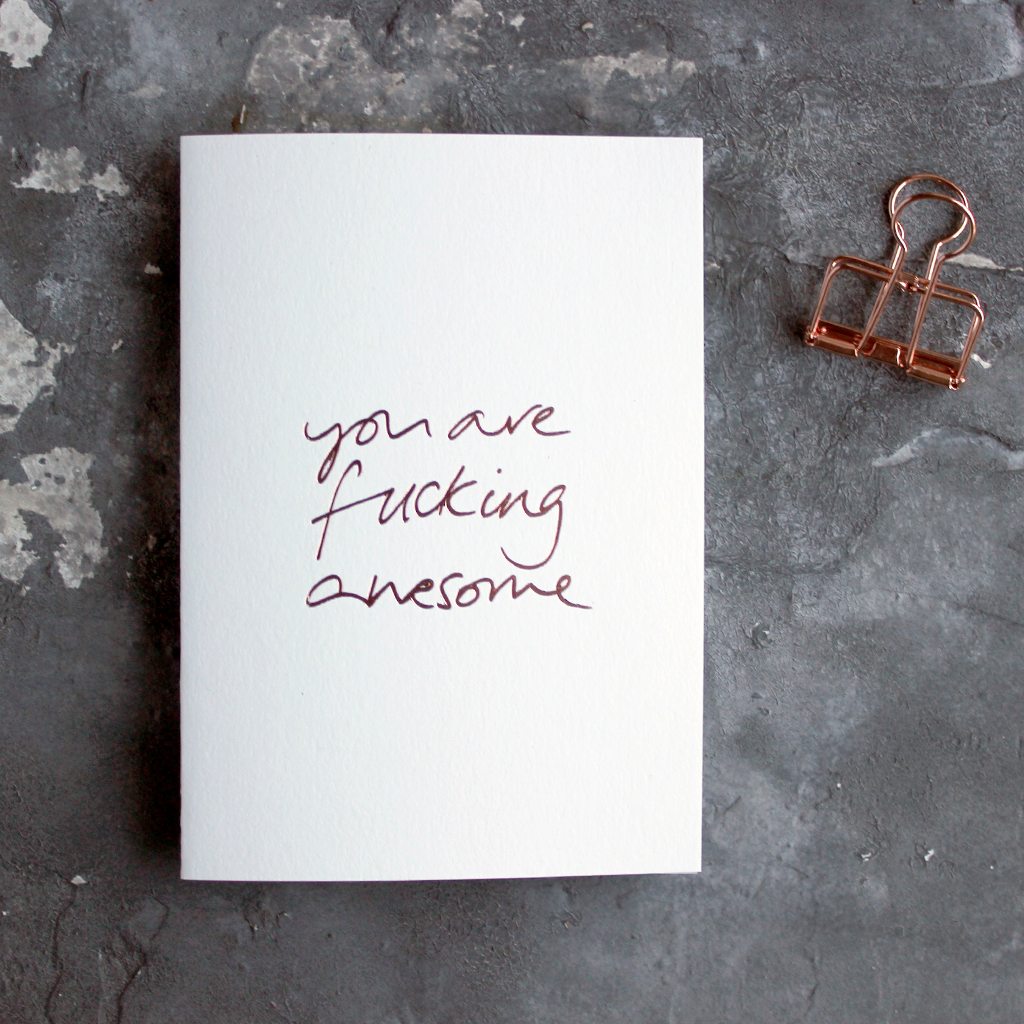 you are
fucking
awesome